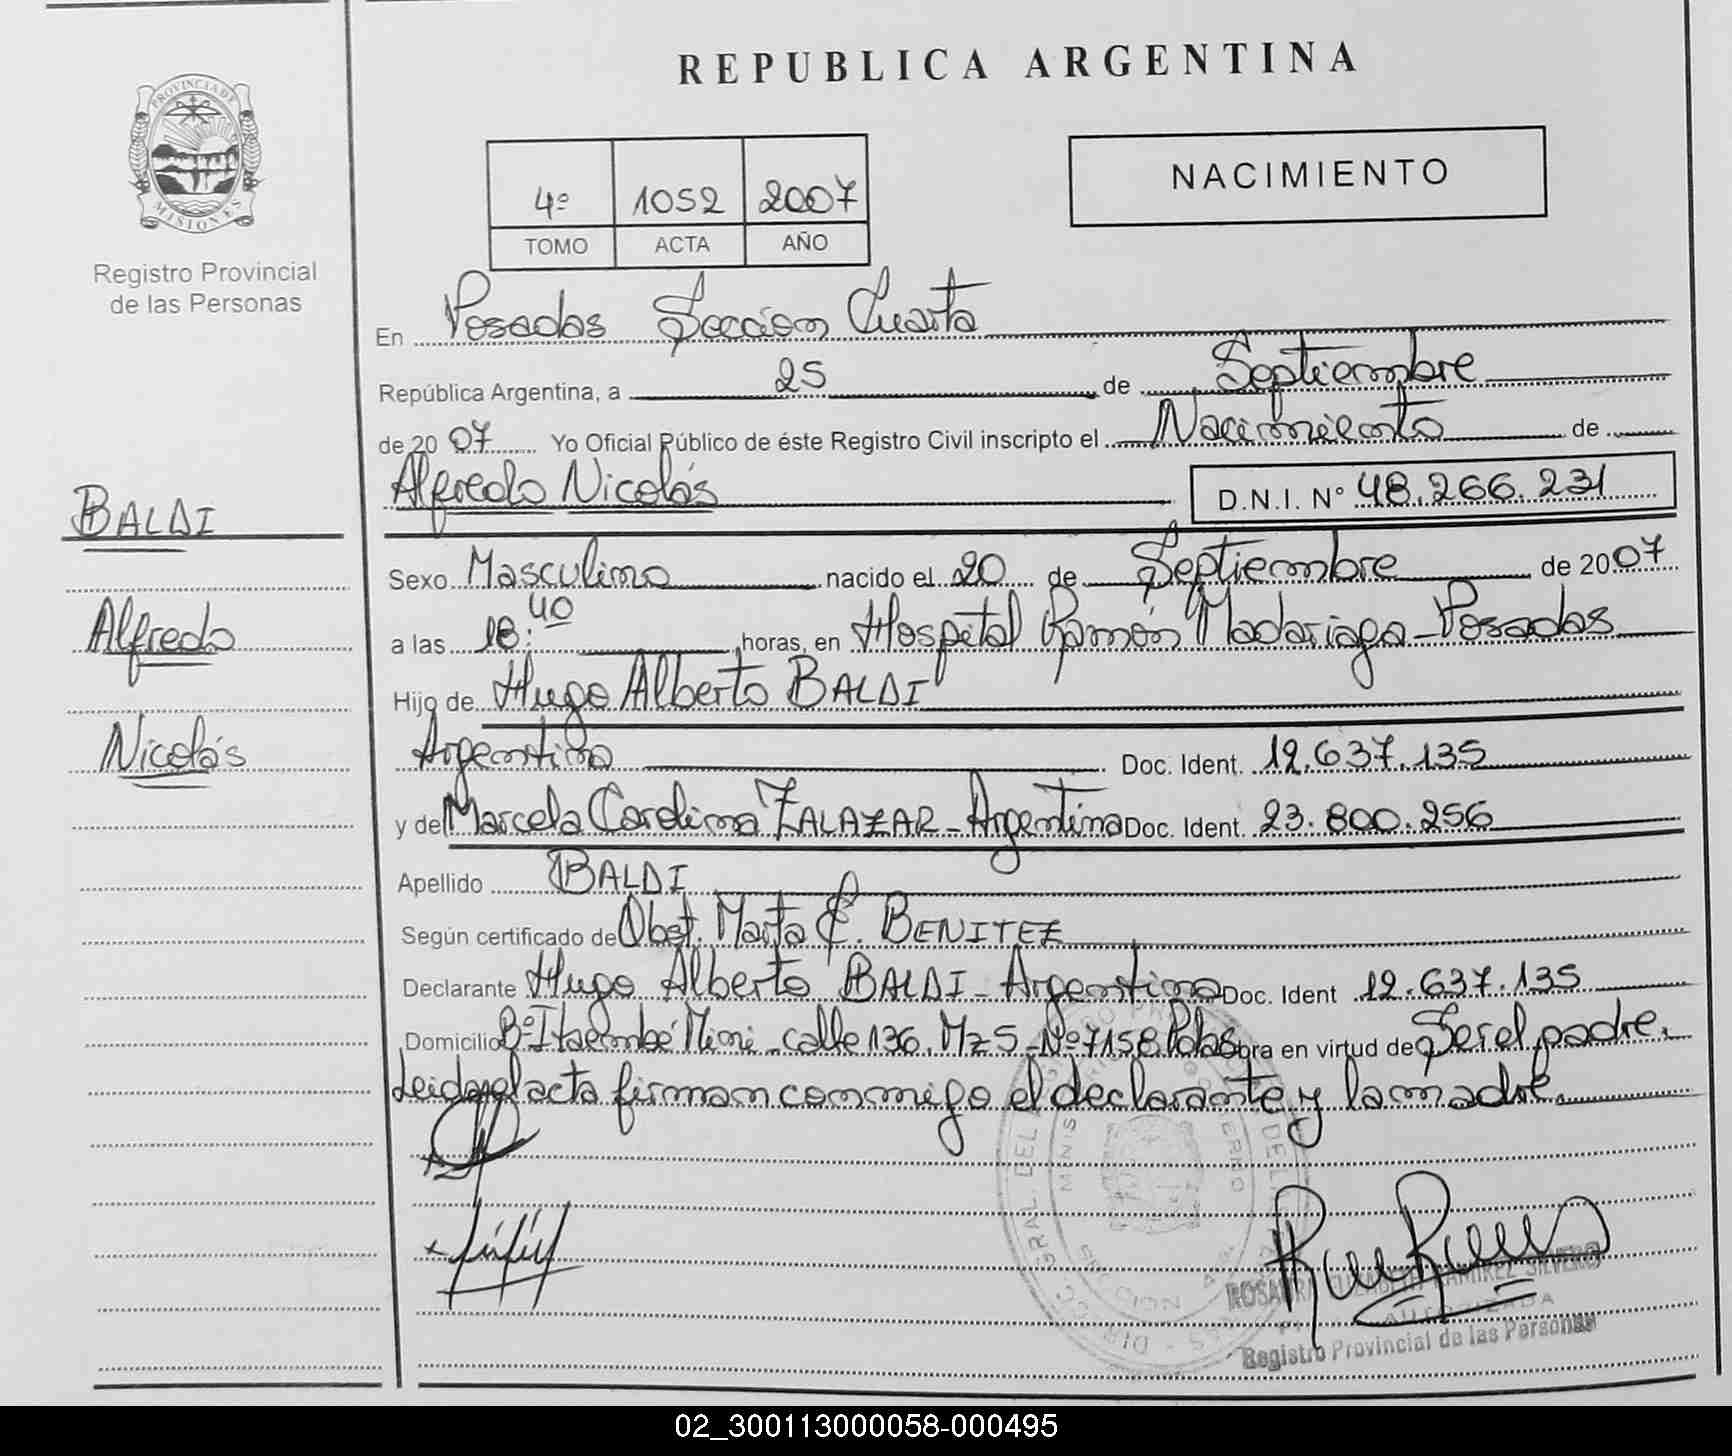 PROVINCIA DE
MISIONES
Registro Provincial
de las Personas
BALDI
Alfredo
Nicolás
REPUBLICA ARGENTINA
4º 1052 2007
TOMO ACTA AÑO
NACIMIENTO
En Posadas Sección Cuarta
República Argentina, a 25 de Septiembre
de 2007 Yo Oficial Público de éste Registro Civil inscripto el Nacimiento de
Alfredo Nicolás D.N.I. Nº 48.266.231
Sexo Masculino nacido el 20 de Septiembre de 2007
a las 18:40 horas, en Hospital Ramón Madariaga - Posadas
Hijo de Hugo Alberto BALDI
Argentino Doc. Ident. 12.637.135
y de Marcela Carolina ZALAZAR - Argentina Doc. Ident. 23.800.256
Apellido BALDI
Según certificado de Obst. Marta E. BENITEZ
Declarante Hugo Alberto BALDI - Argentino Doc. Ident 12.637.135
Domicilio Bº Itaembé Miní - calle 136. Mz 5 - Nº 7158 Pdas obra en virtud de Ser el padre.
Leida el acta firman conmigo el declarante y la madre.
RAMIREZ SILVERO
AUTORIZADA
Registro Provincial de las Personas
02_300113000058-000495